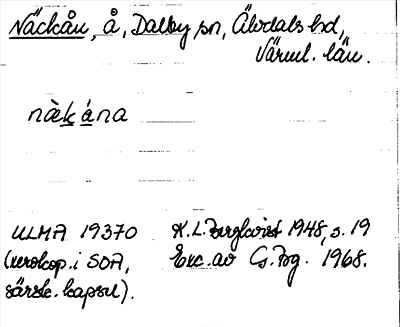 Näckån, å, Dalby sn, Älvdals hd,
Värml. län.
nàkána
ULMA 19370 K.L. Bergkvist 1948, s. 19
(xerokop. i SOA, Exc. av G. Bg. 1968.
särsk. kapsel).